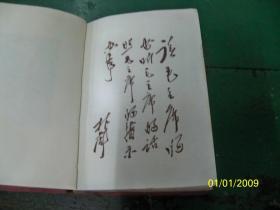 读毛主席的
书，听毛主席的话，
照毛主席的指示
办事
林彪
01/01/2009